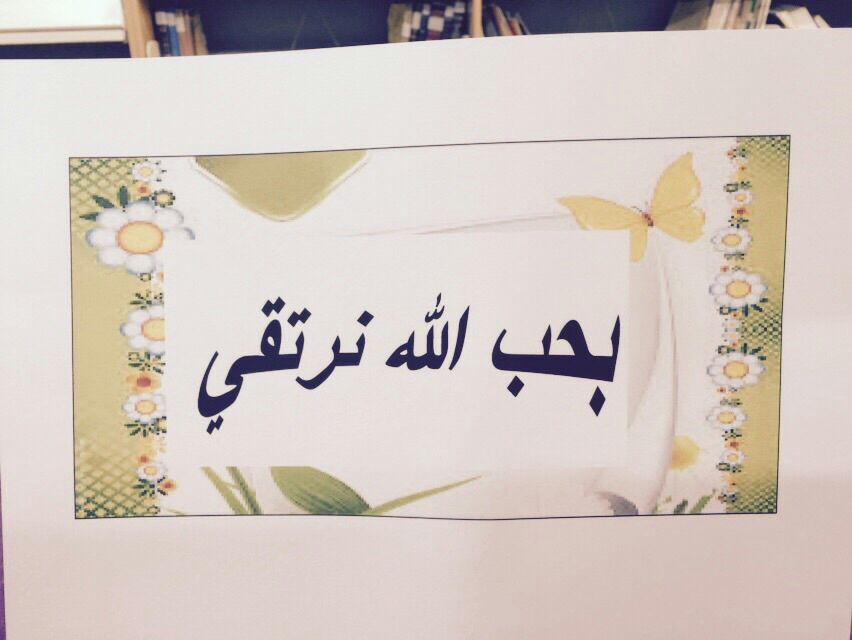 بحب الله نرتقي